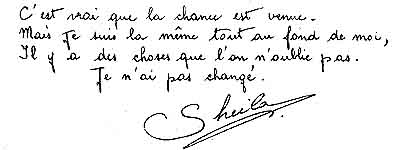 C'est vrai que la chance est venue.
Mais Je suis la même tout au fond de moi,
Il y a des choses que l'on n'oublie pas.
Je n'ai pas changé.
Sheila